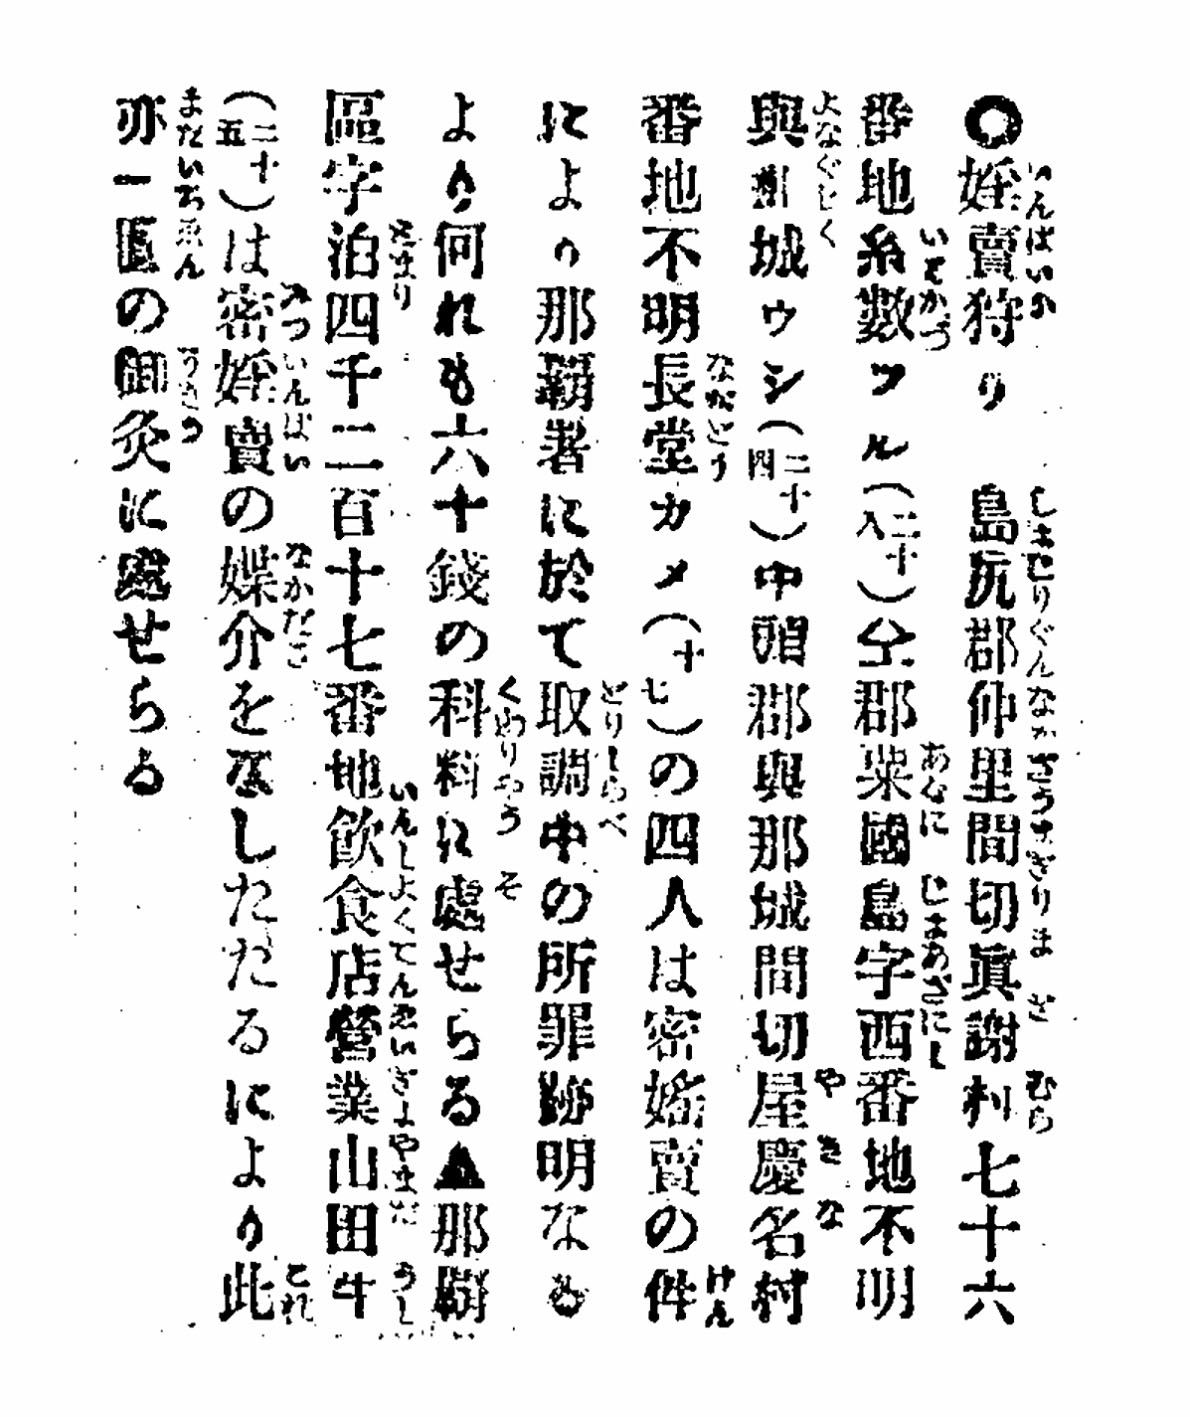 ○婬賣狩り　島尻郡仲里間切眞謝村七十六
番地糸數ツル（二十八）仝郡粟國島字西番地不明
與那城ウシ（二十四）中頭郡與那城間切屋慶名村
番地不明長堂カメ（十七）の四人は密婬賣の件
により那覇署に於て取調中の所罪跡明なる
より何れも六十錢の科料に處せらる▲那覇
區字泊四千二百十七番地飮食店營業山田牛
（二十五）は密婬賣の媒介をなしたたるにより此
亦一圓の御灸に處せらる